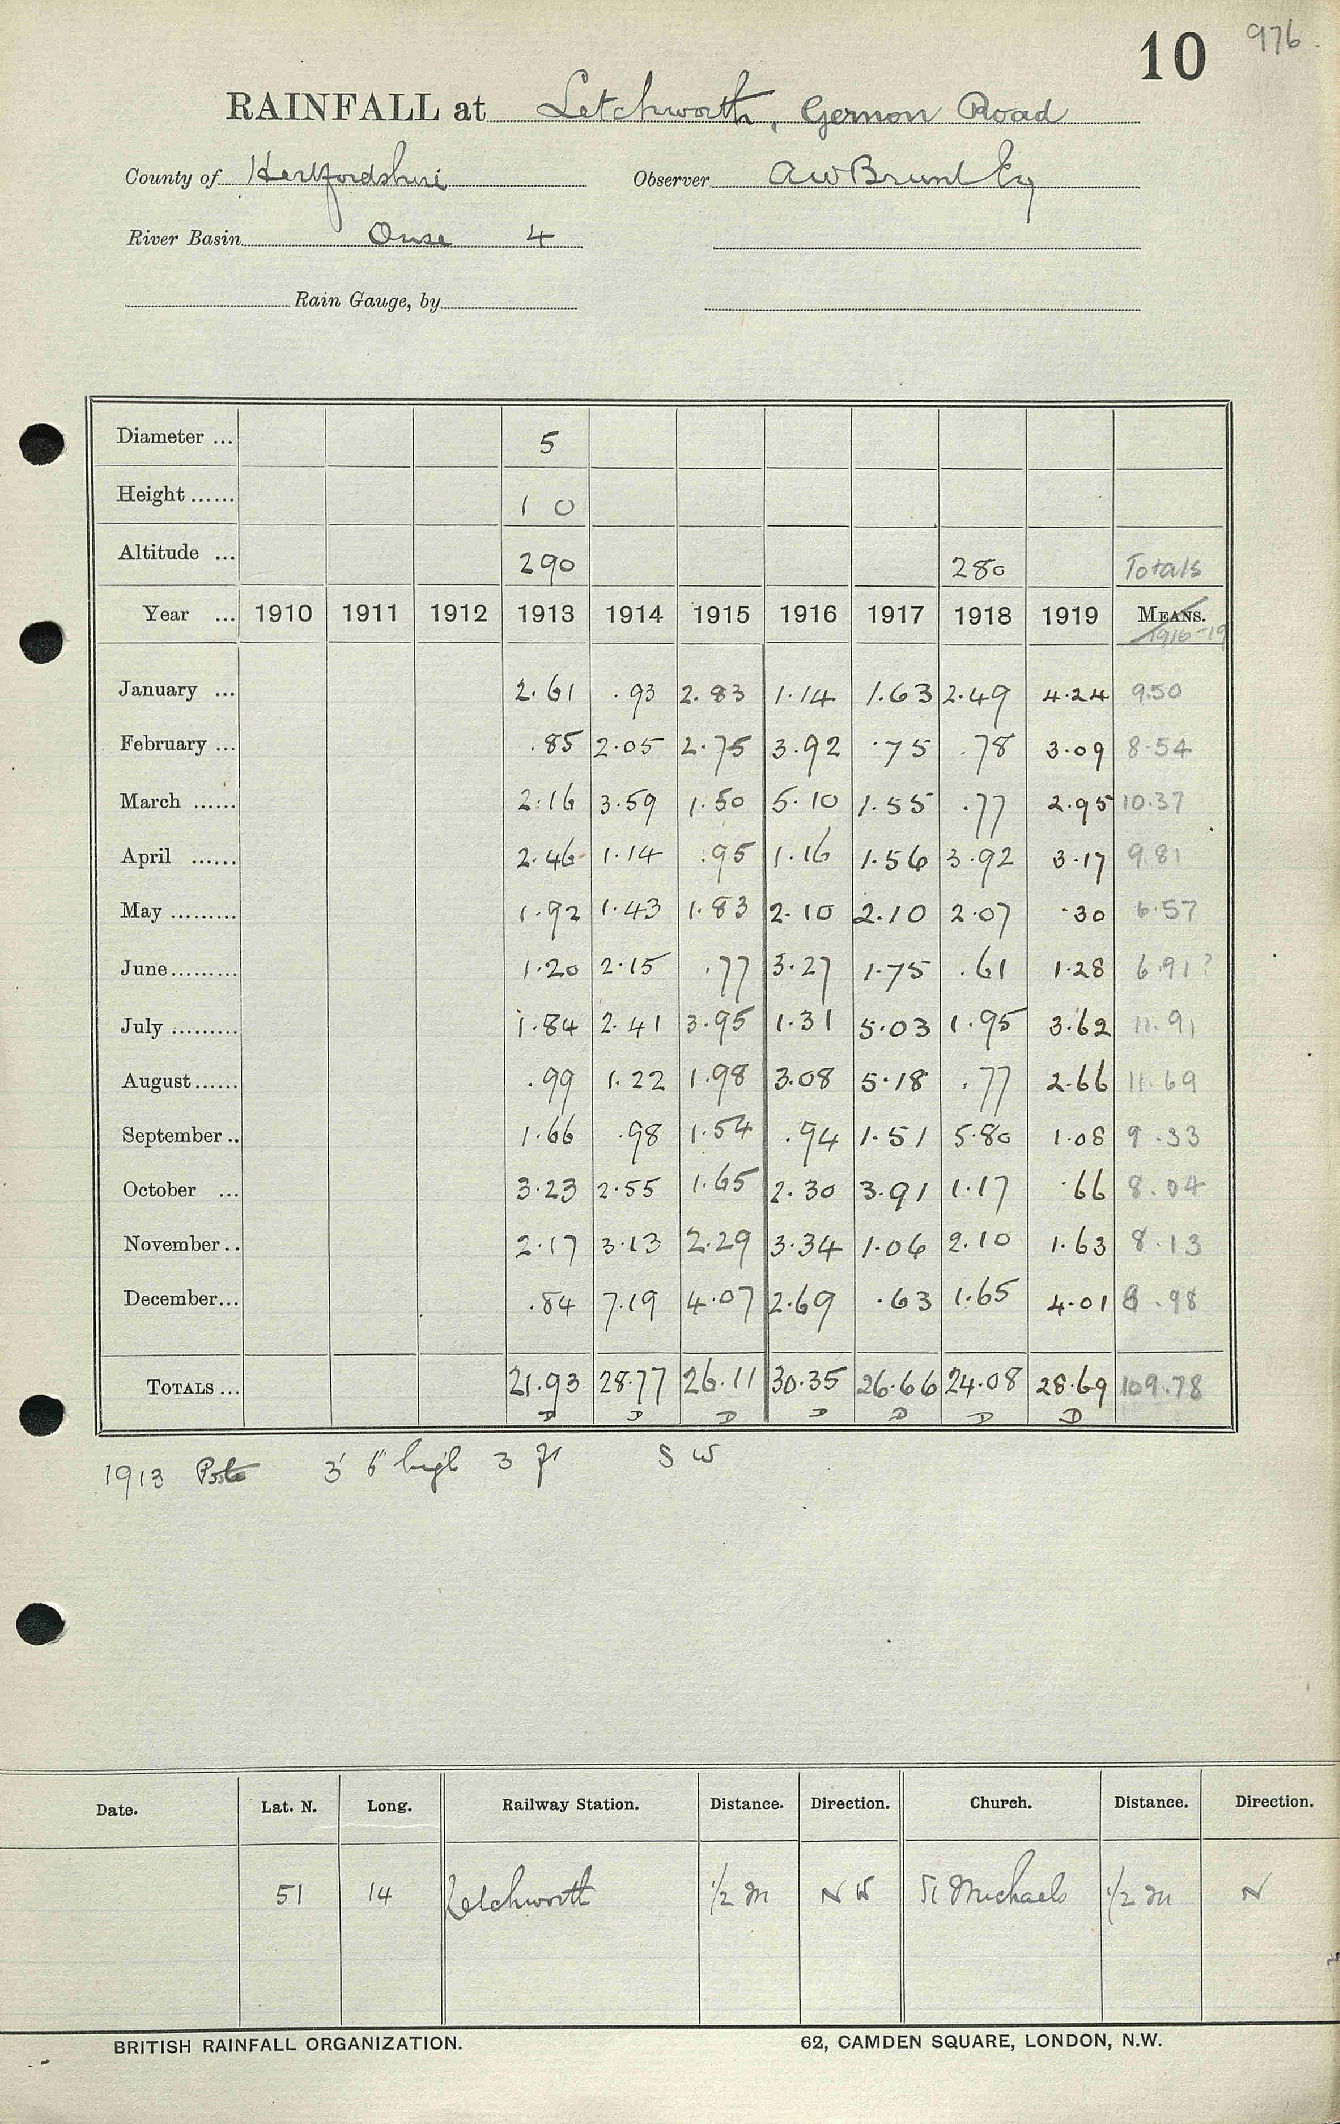 10 976
RAINFALL at Letchworth, Gernon Road
County of Hertfordshire Observer A W Brunt Esq
River Basin Ouse 4
Rain Gauge, by
Diameter ... 5
Height ...... 1 0
Altitude ... 290 280 Totals
Year ... 1910 1911 1912 1913 1914 1915 1916 1917 1918 1919 MEANS.
1916-19
January ... 2.61 .93 2.83 1.14 1.63 2.49 4.24 9.50
February ... .85 2.05 2.75 3.92 .75 .78 3.09 8.54
March ...... 2.16 3.59 1.50 5.10 1.55 .77 2.95 10.37
April ...... 2.46 1.14 .95 1.16 1.56 3.92 3.17 9.81
May ......... 1.92 1.43 1.83 2.10 2.10 2.07 .30 6.57
June......... 1.20 2.15 .77 3.27 1.75 .61 1.28 6.91?
July ......... 1.84 2.41 3.95 1.31 5.03 1.95 3.62 11.91
August...... .99 1.22 1.98 3.08 5.18 .77 2.66 11.69
September .. 1.66 .98 1.54 .94 1.51 5.80 1.08 9.33
October ... 3.23 2.55 1.65 2.30 3.91 1.17 .66 8.04
November .. 2.17 3.13 2.29 3.34 1.06 2.10 1.63 8.13
December... .84 7.19 4.07 2.69 .63 1.65 4.01 8.98
TOTALS ... 21.93 28.77 26.11 30.35 26.66 24.08 28.69 109.78
D D D D D D D
1913 3' 6" high 3 ft S W
Date. Lat. N. Long. Railway Station. Distance. Direction. Church. Distance. Direction.
51 14 Letchworth 1/2 m N W St Michaels 1/2 m N
BRITISH RAINFALL ORGANIZATION. 62, CAMDEN SQUARE, LONDON, N.W.